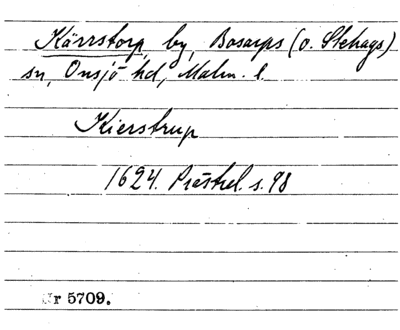 Kärrstorp, by, Bosarps (o. Stehags)
sn, Onsjö hd, Malm. l.
Kierstrup
1624. Prästrel. s. 98
Nr 5709.